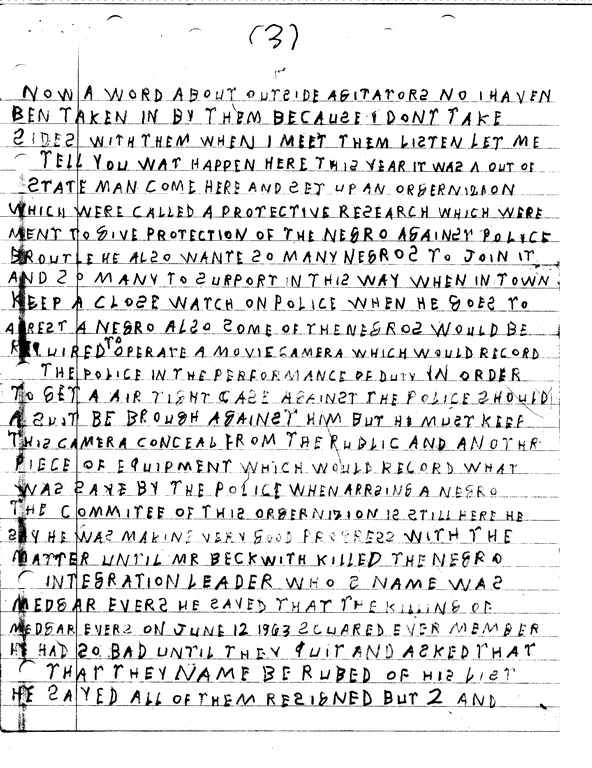 (3)
NOW A WORD ABOUT OUTSIDE AGITATORS NO I HAVEN
BEN TAKEN IN BY THEM BECAUSE I DONT TAKE
SIDES WITH THEM WHEN I MEET THEM LISTEN LET ME
TELL YOU WAT HAPPEN HERE THIS YEAR IT WAS A OUT OF
STATE MAN COME HERE AND SET UP AN ORGERNIZION
WHICH WERE CALLED A PROTECTIVE RESEARCH WHICH WERE
MENT TO GIVE PROTECTION OF THE NEGRO AGAINST POLICE
BROUTLE HE ALSO WANTE SO MANY NEGROS TO JOIN IT
AND SO MANY TO SUPPORT IN THIS WAY WHEN IN TOWN
KEEP A CLOSE WATCH ON POLICE WHEN HE GOES TO
ARREST A NEGRO ALSO SOME OF THE NEGROS WOULD BE
REQUIRED TO OPERATE A MOVIE CAMERA WHICH WOULD RECORD
THE POLICE IN THE PERFORMANCE OF DUTY IN ORDER
TO GET A AIR TIGHT CASE AGAINST THE POLICE SHOULD
A SUIT BE BROUGH AGAINST HIM BUT HE MUST KEEP
THIS CAMERA CONCEAL FROM THE PUDLIC AND ANOTHR
PIECE OF EQUIPMENT WHICH WOULD RECORD WHAT
WAS SAYE BY THE POLICE WHEN ARRSING A NEGRO
THE COMMITEE OF THIS ORGERNIZION IS STILL HERE HE
SAY HE WAS MAKING VERY GOOD PROGRESS WITH THE
MATTER UNTIL MR BECKWITH KILLED THE NEGRO
INTEGRATION LEADER WHO S NAME WAS
MEDGAR EVERS HE SAYED THAT THE KILLING OF
MEDGAR EVERS ON JUNE 12 1963 SCUARED EVER MEMBER
HE HAD SO BAD UNTIL THEY QUIT AND ASKED THAT
THAT THEY NAME BE RUBED OF HIS LIST
HE SAYED ALL OF THEM RESIGNED BUT 2 AND